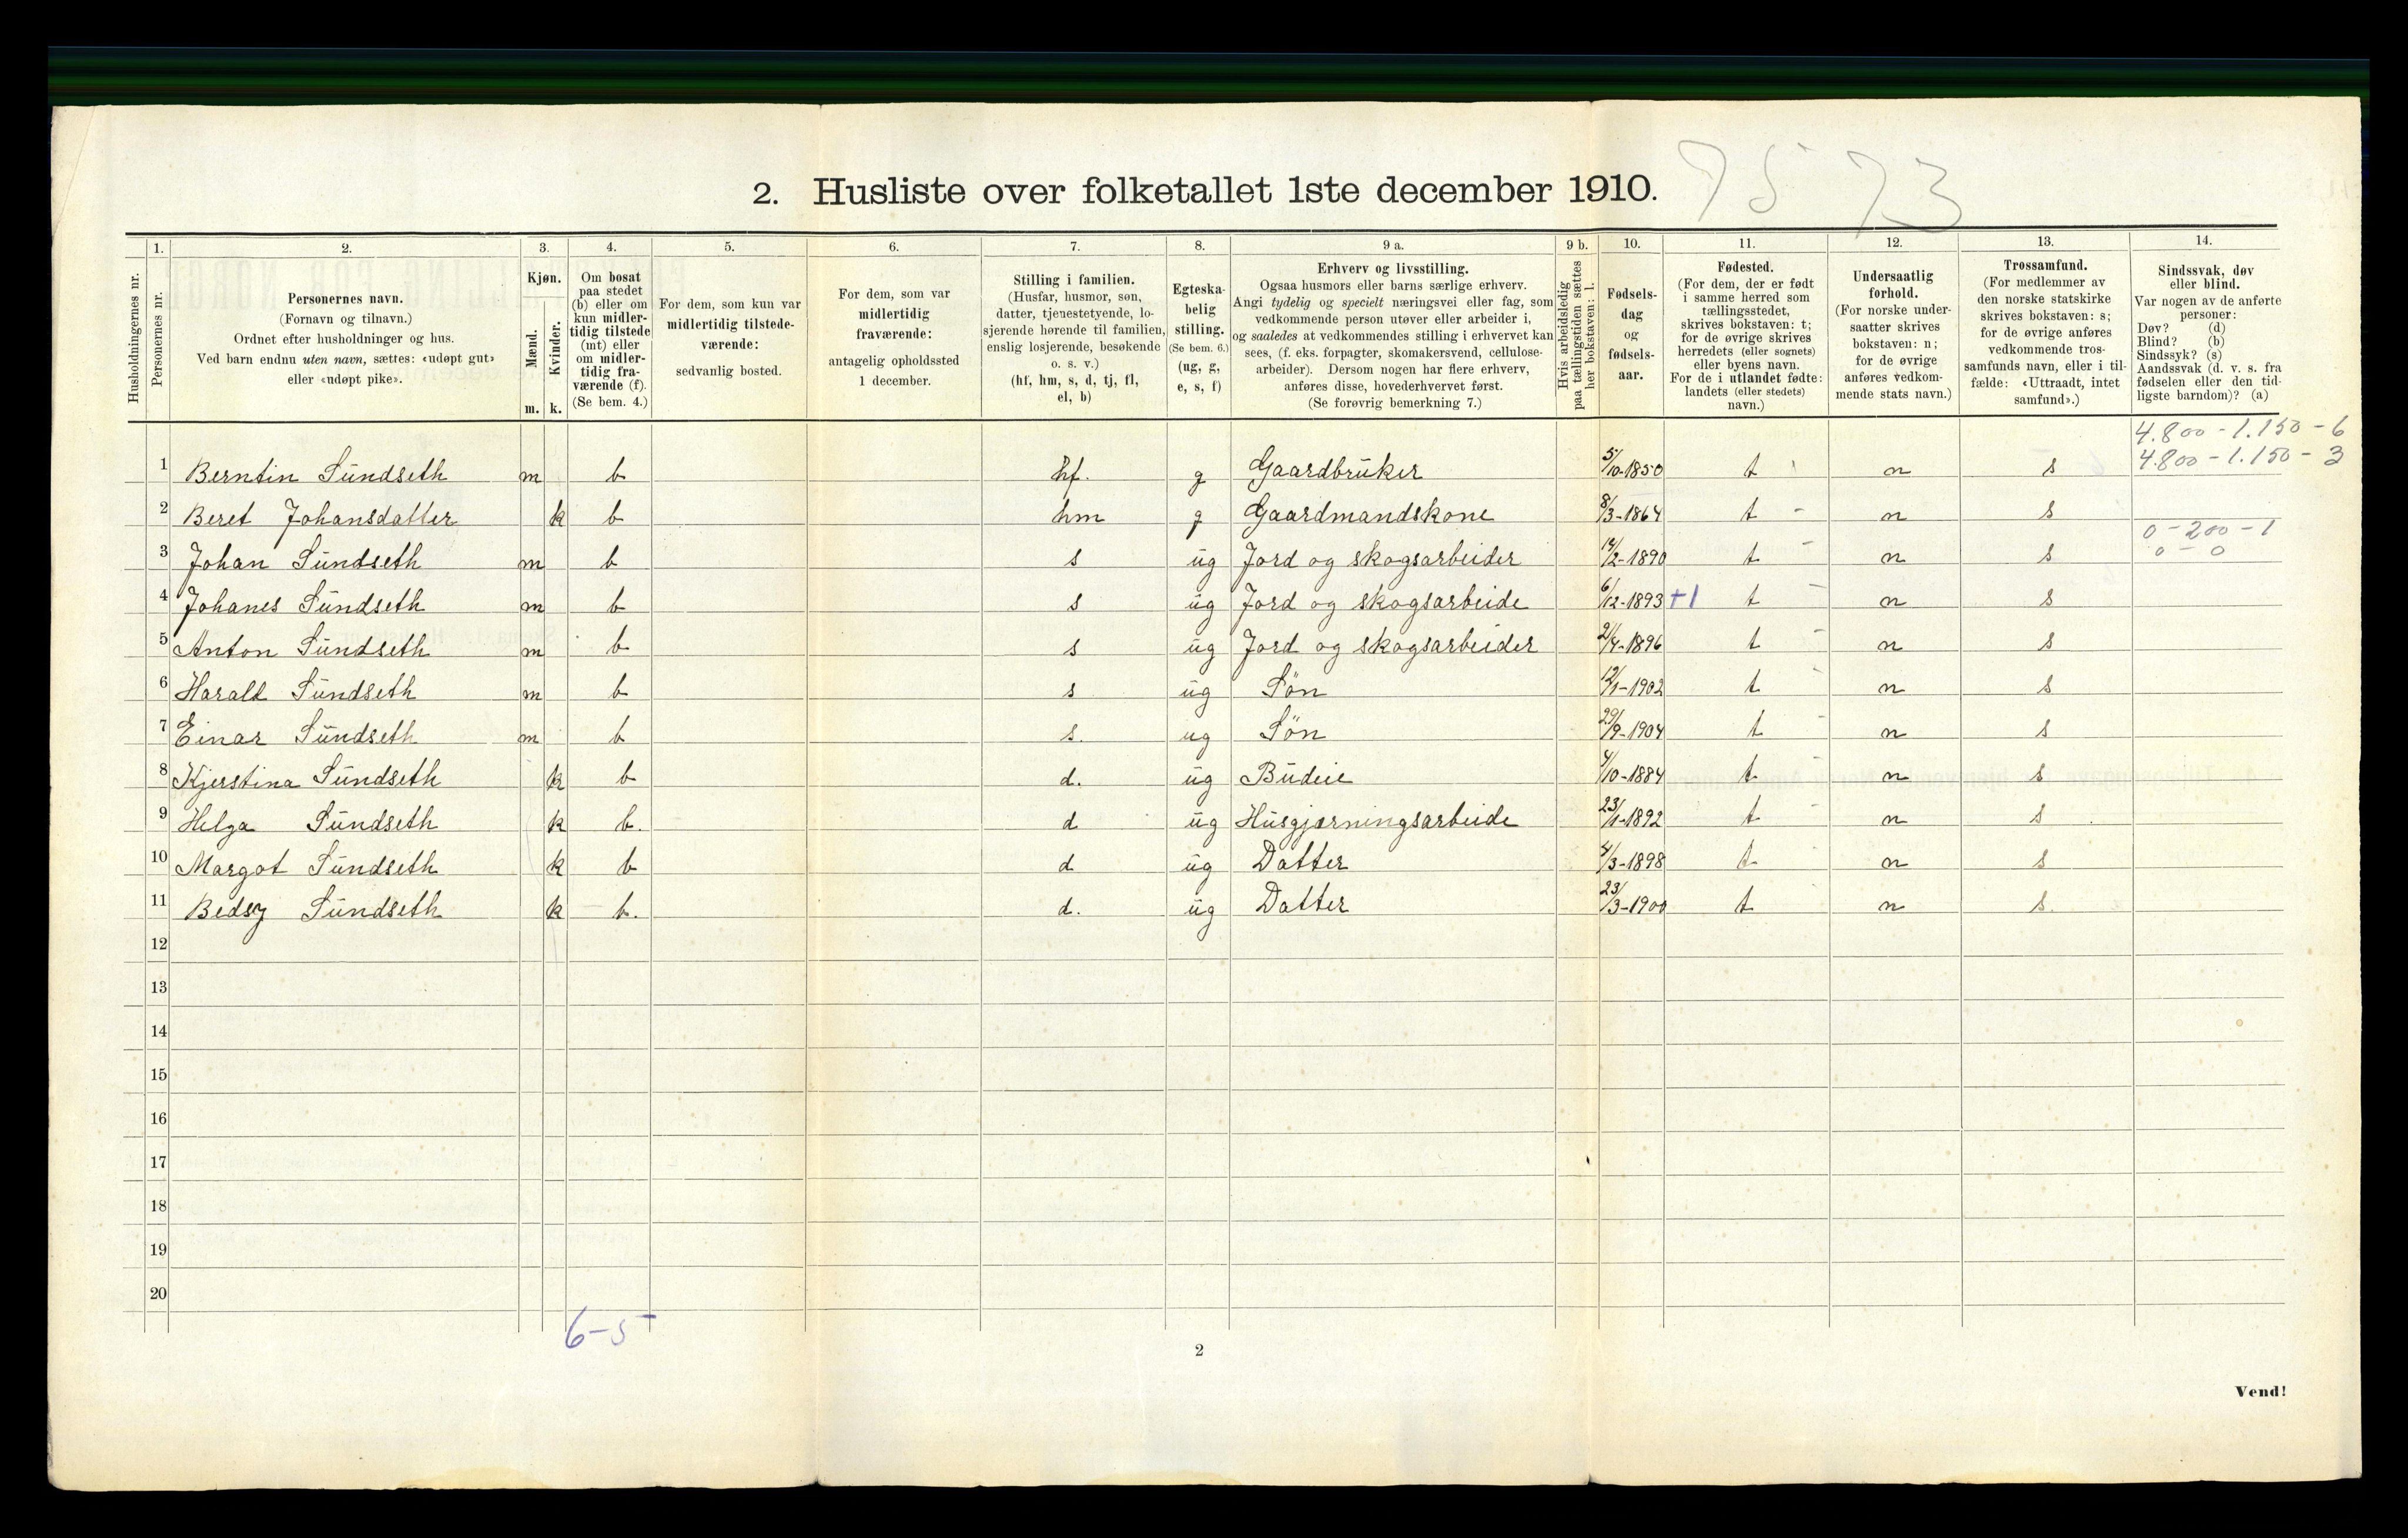 75 73
2. Husliste over folketallet 1ste december 1910.
1. 2. 3. 4. 5. 6. 7. 8. 9 a. 9 b. 10. 11. 12. 13. 14.
Husholdningernes nr.
Personernes nr.
Personernes navn.
(Fornavn og tilnavn.)
Ordnet efter husholdninger og hus.
Ved barn endnu uten navn, sættes: «udøpt gut»
eller «udøpt pike».
Kjøn.
Mænd.
Kvinder.
m. k.
Om bosat
paa stedet
(b) eller om
kun midler-
tidig tilstede
(mt) eller
om midler-
tidig fra-
værende (f).
(Se bem. 4.)
For dem, som kun var
midlertidig tilstede-
værende:
sedvanlig bosted.
For dem, som var
midlertidig
fraværende:
antagelig opholdssted
1 december.
Stilling i familien.
(Husfar, husmor, søn,
datter, tjenestetyende, lo-
sjerende hørende til familien,
enslig losjerende, besøkende
o. s. v.)
(hf, hm, s, d, tj, fl,
el, b)
Egteska-
belig
stilling.
(Se bem. 6.)
(ug, g,
e, s, f)
Erhverv og livsstilling.
Ogsaa husmors eller barns særlige erhverv.
Angi tydelig og specielt næringsvei eller fag, som
vedkommende person utøver eller arbeider i,
og saaledes at vedkommendes stilling i erhvervet kan
sees, (f. eks. forpagter, skomakersvend, cellulose-
arbeider). Dersom nogen har flere erhverv,
anføres disse, hovederhvervet først.
(Se forøvrig bemerkning 7.)
Hvis arbeidsledig
paa tællingstiden sættes
her bokstaven: l.
Fødsels-
dag
og
fødsels-
aar.
Fødested.
(For dem, der er født
i samme herred som
tællingsstedet,
skrives bokstaven: t;
for de øvrige skrives
herredets (eller sognets)
eller byens navn.
For de i utlandet fødte:
landets (eller stedets)
navn.)
Undersaatlig
forhold.
(For norske under-
saatter skrives
bokstaven: n;
for de øvrige
anføres vedkom-
mende stats navn.)
Trossamfund.
(For medlemmer av
den norske statskirke
skrives bokstaven: s;
for de øvrige anføres
vedkommende tros-
samfunds navn, eller i til-
fælde: «Uttraadt, intet
samfund».)
Sindssvak, døv
eller blind.
Var nogen av de anførte
personer:
Døv? (d)
Blind? (b)
Sindssyk? (s)
Aandssvak (d. v. s. fra
fødselen eller den tid-
ligste barndom)? (a)
4.800 - 1.150 - 6
1 Berntin Sundseth m b hf. g Gaardbruker 5/10-1850 t n s 4.800 - 1.150 - 3
2 Beret Johansdatter k b hm g Gaardmandskone 8/3-1864 t n s
0 - 200 - 1
3 Johan Sundseth m b s ug Jord og skogsarbeider 14/2-1890 t n s 0 - 0
4 Johanes Sundseth m b s ug Jord og skogsarbeide 6/12-1893 +1 t n s
5 Anton Sundseth m b s ug Jord og skogsarbeider 2/4-1896 t n s
6 Harald Sundseth m b s ug Søn 12/1-1902 t n s
7 Einar Sundseth m b s. ug Søn 29/9-1904 t n s
8 Kjerstina Sundseth k b d. ug Budeie 4/10-1884 t n s
9 Helga Sundseth k b. d ug Husgjørningsarbeide 23/1-1892 t n s
10 Margot Sundseth k b d ug Datter 4/3-1898 t n s
11 Bedsy Sundseth k b. d. ug Datter 23/3-1900 t n s.
12
13
14
15
16
17
18
19
20
6-5
2
Vend!